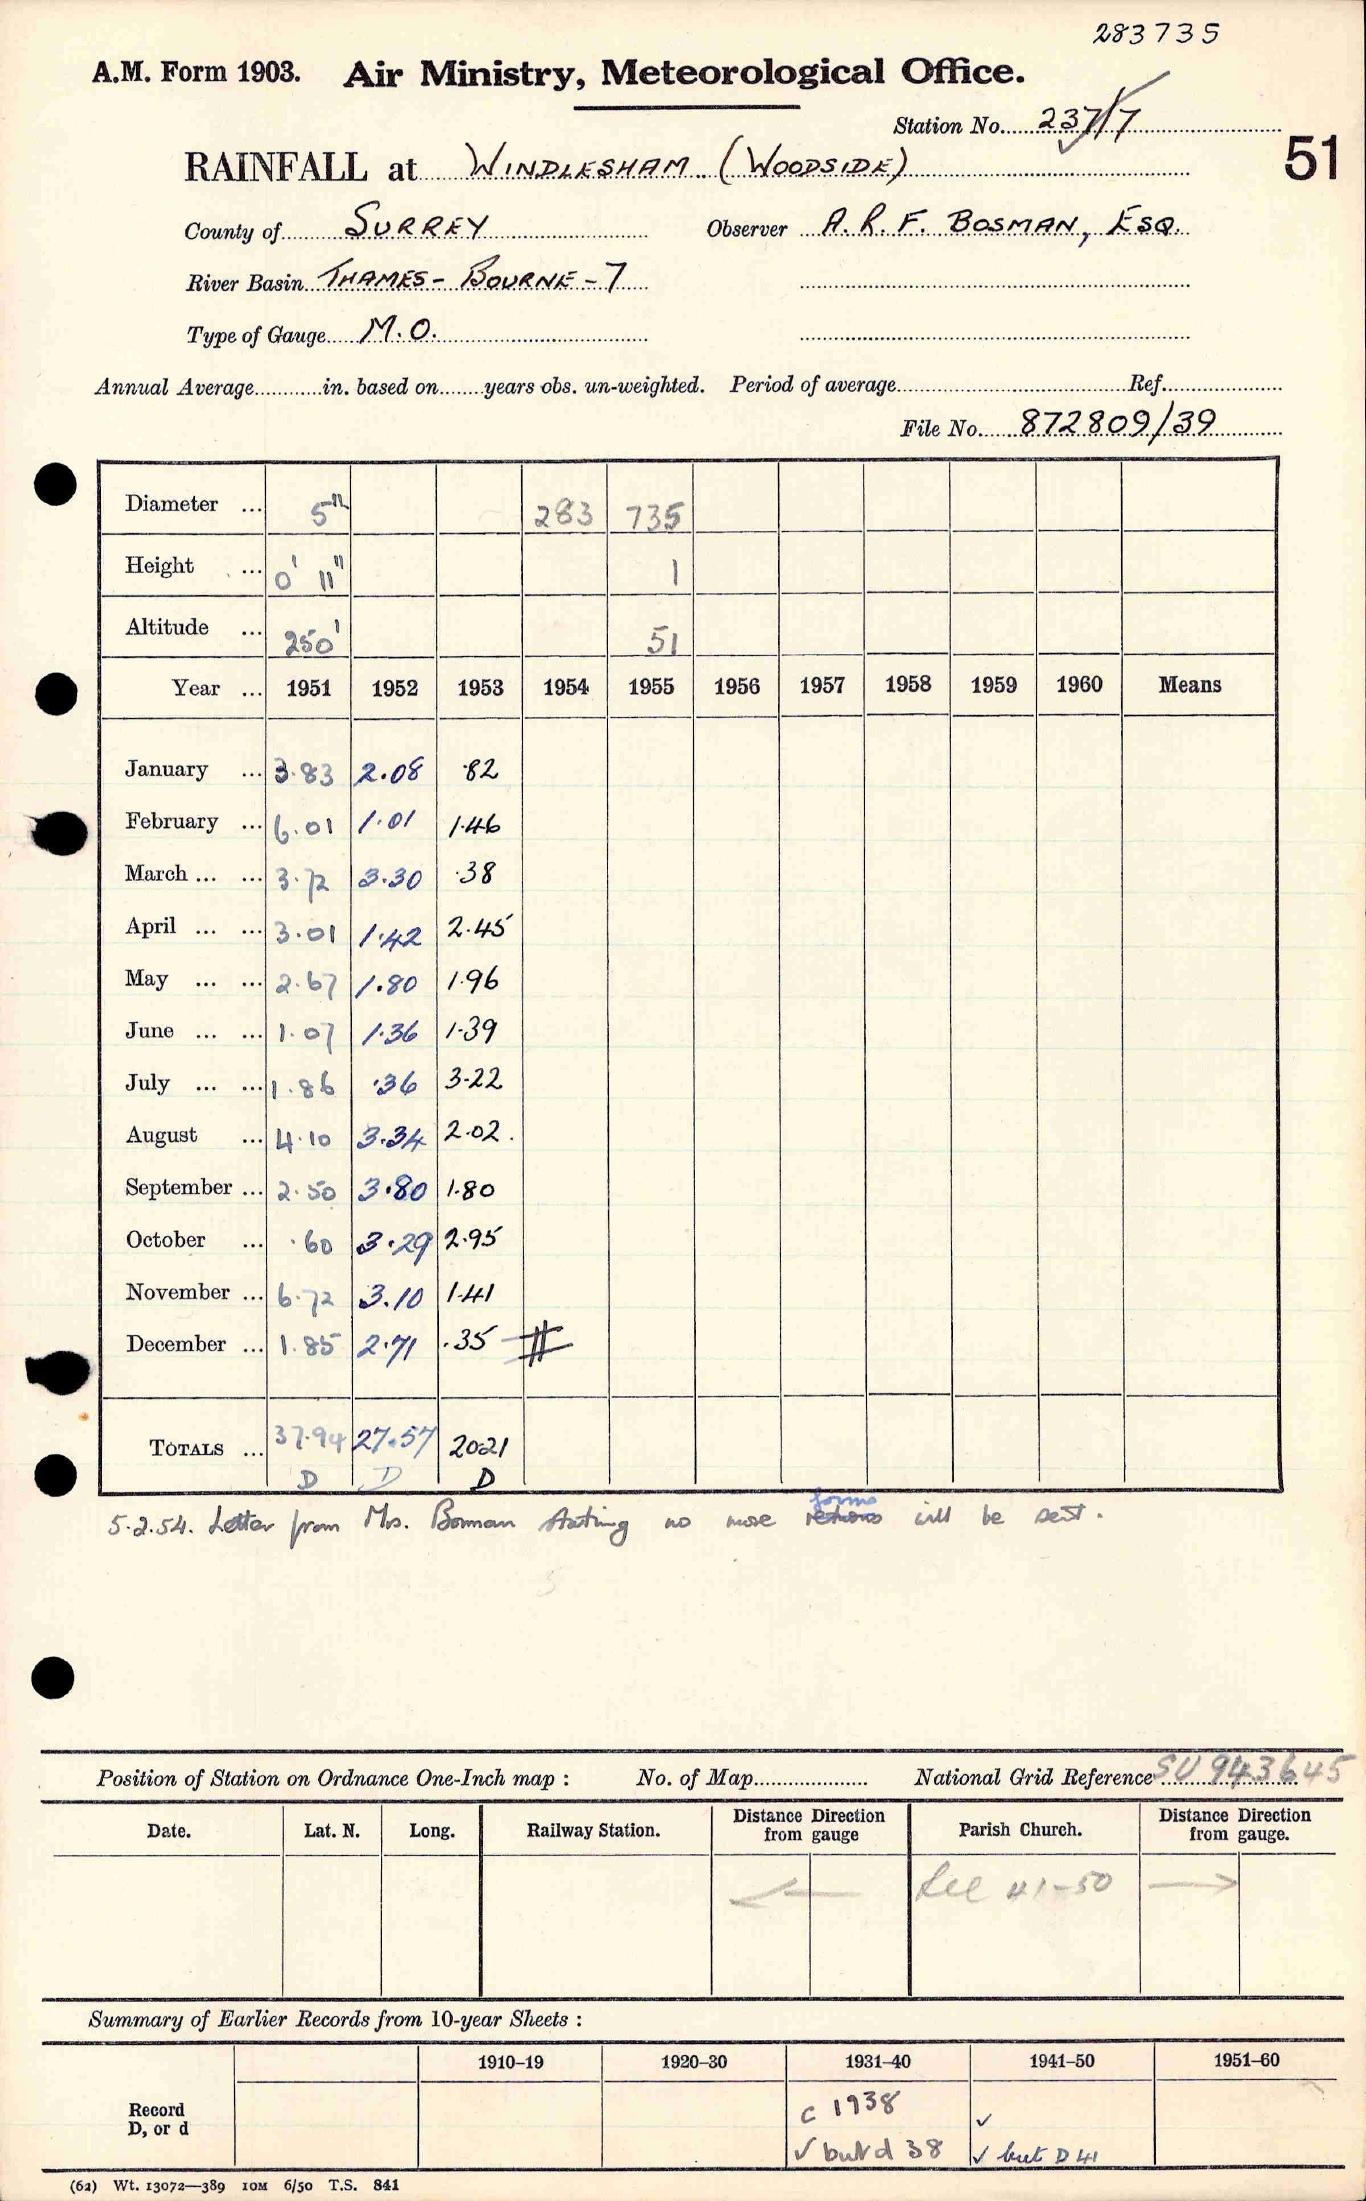 283735
A.M. Form 1903. Air Ministry, Meteorological Office.
Station No. 237/7
51
RAINFALL at WINDLESHAM (WOODSIDE)
County of SURREY Observer A. R. F. BOSMAN, ESQ.
River Basin THAMES - BOURNE - 7
Type of Gauge M.O.
Annual Average in. based on years obs. un-weighted. Period of average Ref.
File No. 872809/39
Diameter ... 5" 283 735
Height ... 0' 11" 1
Altitude ... 250' 51
Year ... 1951 1952 1953 1954 1955 1956 1957 1958 1959 1960 Means
January ... 3.83 2.08 .82
February ... 6.01 1.01 1.46
March ... ... 3.72 3.30 .38
April ... ... 3.01 1.42 2.45
May ... ... 2.67 1.80 1.96
June ... ... 1.07 1.36 1.39
July ... ... 1.86 .36 3.22
August ... 4.10 3.34 2.02
September ... 2.50 3.80 1.80
October ... .60 3.29 2.95
November ... 6.72 3.10 1.41
December ... 1.85 2.71 .35
TOTALS ... 37.94 27.57 20.21
D D D
forms
5.2.54. Letter from Mrs. Bosman stating no more returns will be sent.
Position of Station on Ordnance One-Inch map : No. of Map National Grid Reference SU 943645
Date. Lat. N. Long. Railway Station. Distance Direction from gauge Parish Church. Distance Direction from gauge.
See 41-50
Summary of Earlier Records from 10-year Sheets :
1910–19 1920–30 1931–40 1941–50 1951–60
Record D, or d
c 1938 ✓
✓ but d 38 ✓ but D 41
(62) Wt. 13072—389 10M 6/50 T.S. 841